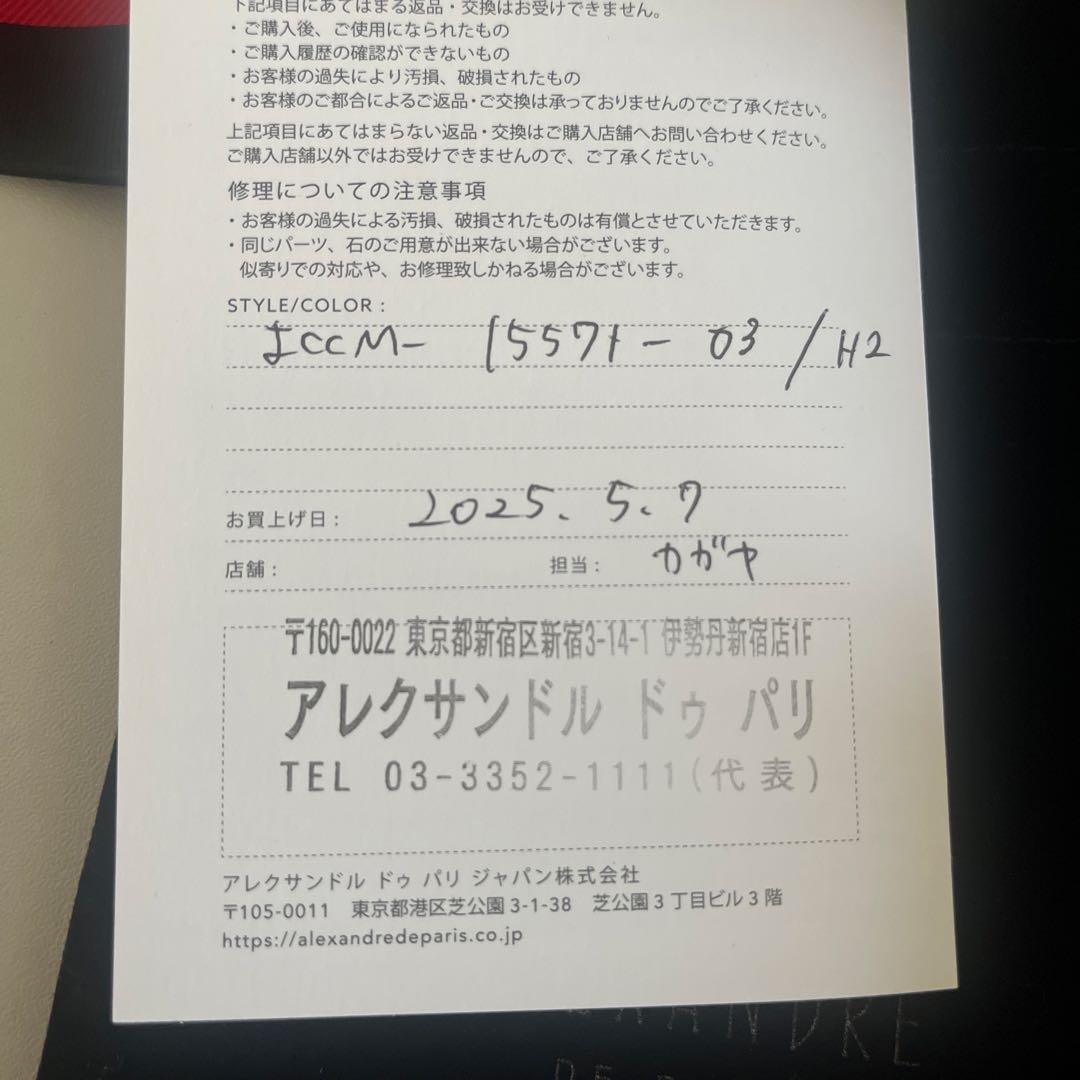 下記項目にあてはまる返品・交換はお受けできません。
・ご購入後、ご使用になられたもの
・ご購入履歴の確認ができないもの
・お客様の過失により汚損、破損されたもの
・お客様のご都合によるご返品・ご交換は承っておりませんのでご了承ください。
上記項目にあてはまらない返品・交換はご購入店舗へお問い合わせください。
ご購入店舗以外ではお受けできませんので、ご了承ください。
修理についての注意事項
・お客様の過失による汚損、破損されたものは有償とさせていただきます。
・同じパーツ、石のご用意が出来ない場合がございます。
似寄りでの対応や、お修理致しかねる場合がございます。
STYLE/COLOR :
ICCM- 15571-03/H2
お買上げ日: 2025.5.7
店舗: 担当: カガヤ
〒160-0022 東京都新宿区新宿3-14-1 伊勢丹新宿店1F
アレクサンドル ドゥ パリ
TEL 03-3352-1111(代表)
アレクサンドル ドゥ パリ ジャパン株式会社
〒105-0011 東京都港区芝公園3-1-38 芝公園3丁目ビル3階
https://alexandredeparis.co.jp